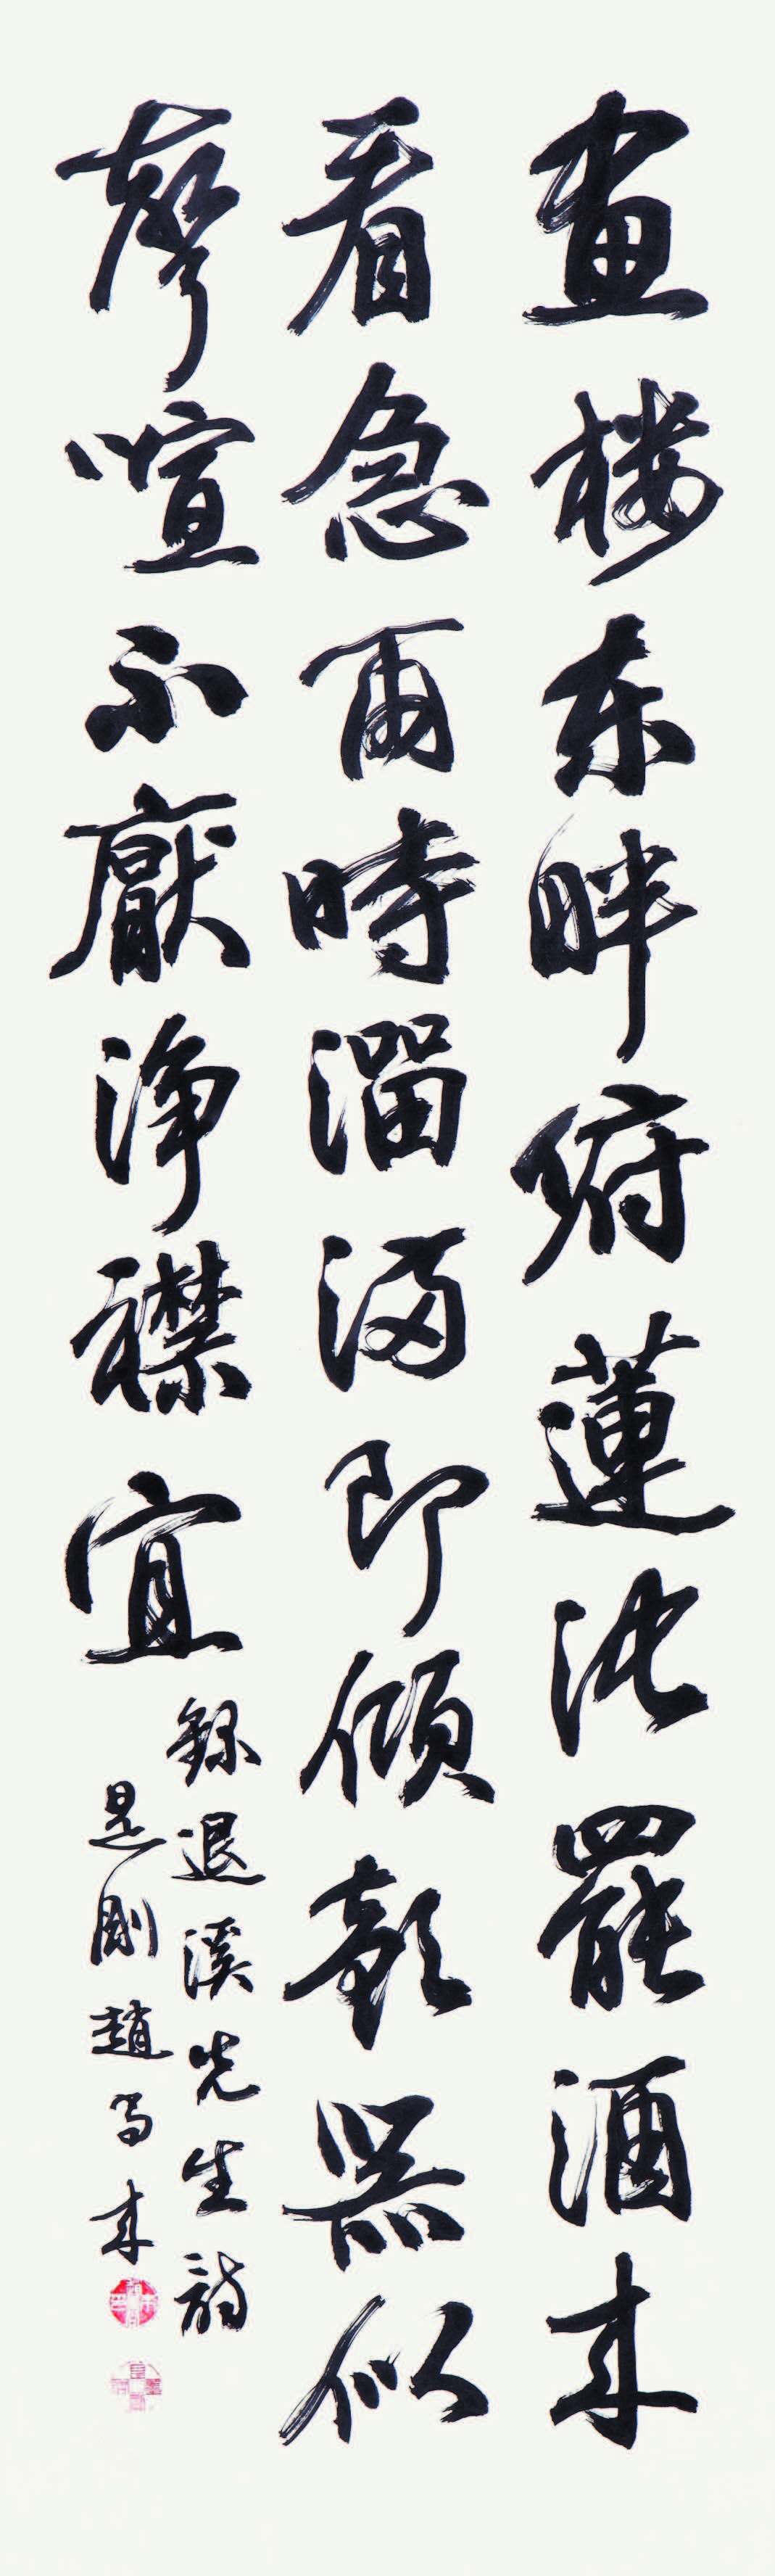 畫樓東畔俯蓮池罷酒來
看急雨時溜滿即傾欹器似
聲喧不厭淨襟宜
錄退溪先生詩
是剛趙來